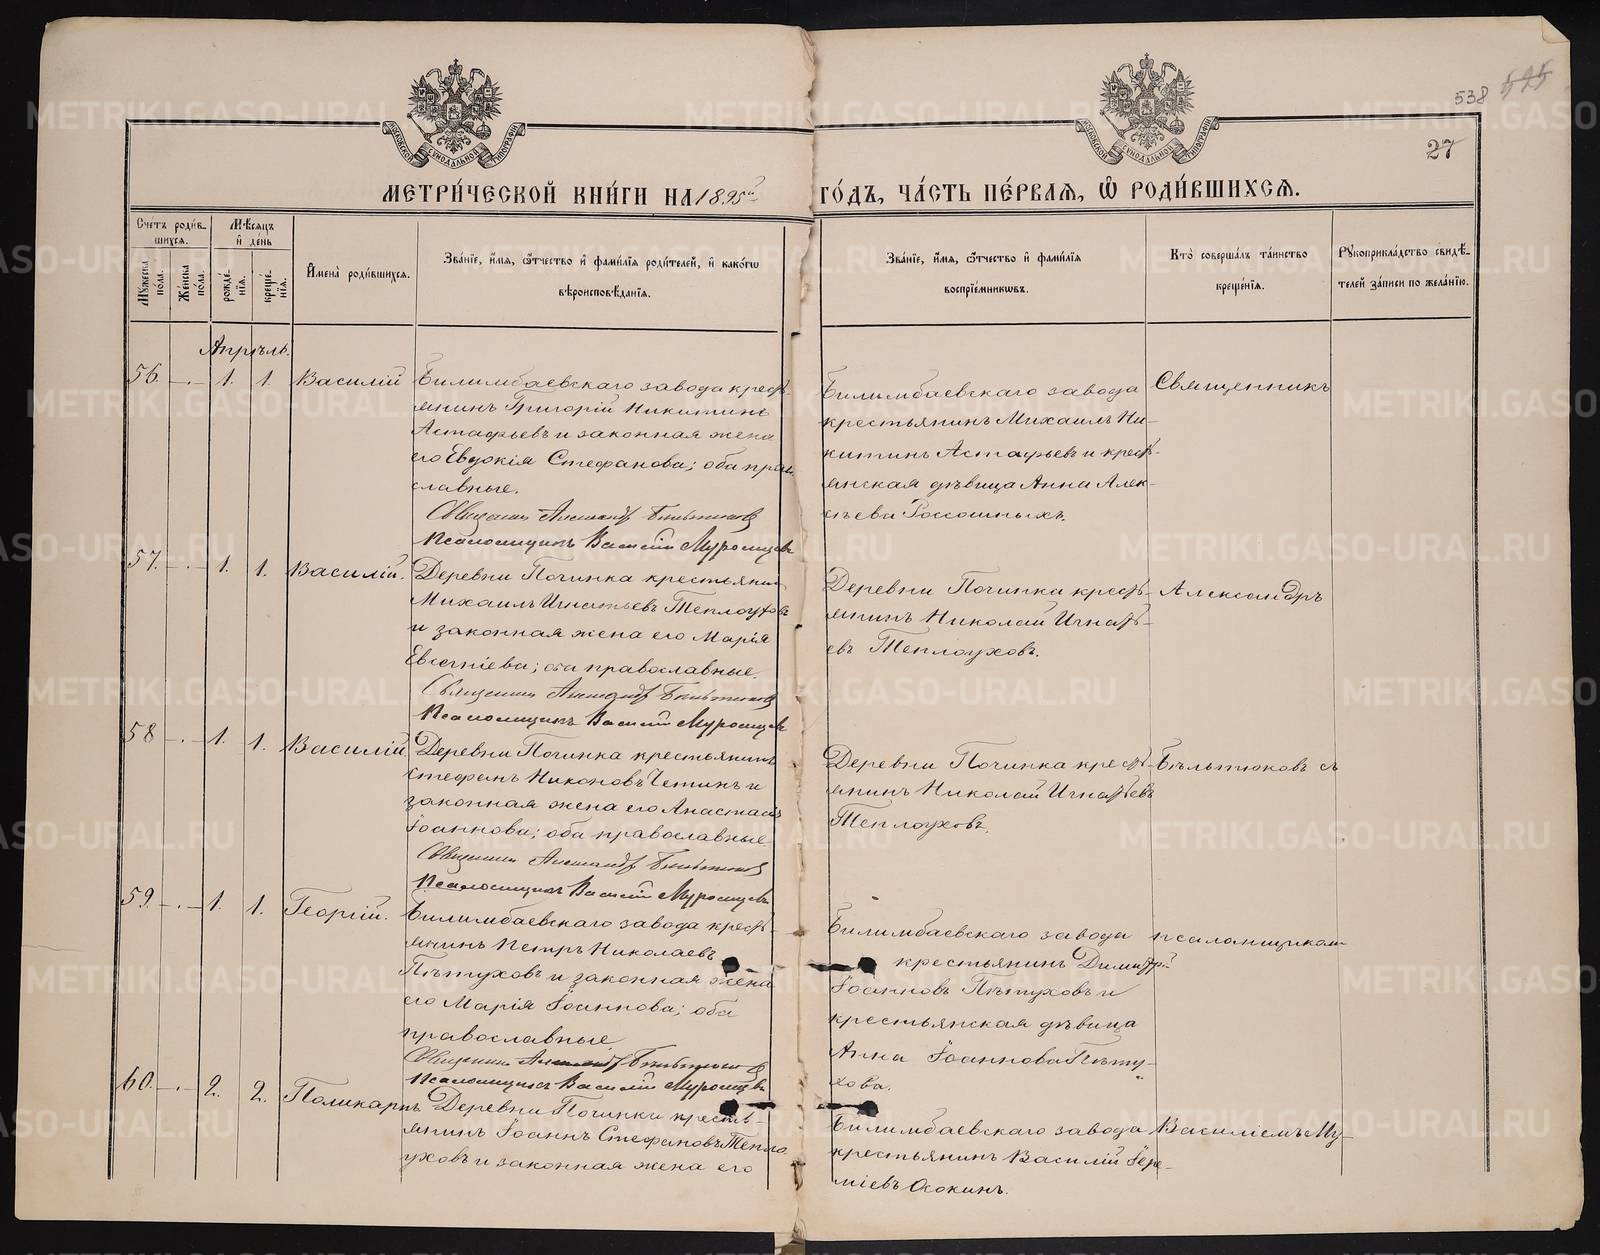 538 525
27
МОСКОВСКОЙ СѴНОДАЛЬНОЙ ТИПОГРАФІИ
МОСКОВСКОЙ СѴНОДАЛЬНОЙ ТИПОГРАФІИ
МЕТРИ́ЧЕСКОЙ КНИ́ГИ НА 1895й ГО́ДЪ, ЧА́СТЬ ПЕ́РВАѦ, Ѽ РОДИ́ВШИХСѦ.
Сче́тъ роди́в-
шихсѧ.
Мꙋ́жеска по́ла.
Же́нска по́ла.
Мѣ́сѧцъ
и҆ де́нь
рожде́-
нїѧ.
креще́-
нїѧ.
И҆мена̀ роди́вшихсѧ.
Зва́нїе, и҆́мѧ, ѻ҆́тчество и҆ фами́лїѧ роди́телей, и҆ како́гѡ
вѣроисповѣ́данїѧ.
Зва́нїе, и҆́мѧ, ѻ҆́тчество и҆ фами́лїѧ
воспрїе́мникѡвъ.
Кто̀ соверша́лъ та́инство
креще́нїѧ.
Рꙋкоприкла́дство свидѣ́-
телей за́писи по жела́нїю.
Апрѣль.
56. - . - 1. 1. Василій
Билимбаевскаго завода кресть-
янинъ Григорій Никитинъ
Астафьевъ и законная жена
его Евдокія Стефанова; оба право-
славные.
Священникъ Александръ Бѣльтюковъ
Псаломщикъ Василій Муромцевъ
Билимбаевскаго завода
крестьянинъ Михаилъ Ни-
китинъ Астафьевъ и кресть-
янская дѣвица Анна Алек-
сѣева Россошныхъ.
Священникъ
57. - . - 1. 1. Василій.
Деревни Починка крестьянинъ
Михаилъ Игнатьевъ Теплоуховъ
и законная жена его Марія
Евгеніева; оба православные.
Священникъ Александръ Бѣльтюковъ
Псаломщикъ Василій Муромцевъ
Деревни Починка кресть-
янинъ Николай Игнать-
евъ Теплоуховъ.
Александръ
58 - . - 1. 1. Василій
Деревни Починка крестьянинъ
Стефанъ Никоновъ Четинъ и
законная жена его Анастасія
Іоаннова; оба православные.
Священникъ Александръ Бѣльтюковъ
Псаломщикъ Василій Муромцевъ
Деревни Починка кресть-
янинъ Николай Игнатьевъ
Теплоуховъ.
Бѣльтюковъ съ
59. - . - 1. 1. Георгій.
Билимбаевскаго завода кресть-
янинъ Петръ Николаевъ
Пѣтуховъ и законная жена
его Марія Іоаннова; оба
православные.
Священникъ Александръ Бѣльтюковъ
Псаломщикъ Василій Муромцевъ
Билимбаевскаго завода
крестьянинъ Димитрій
Іоанновъ Пѣтуховъ и
крестьянская дѣвица
Анна Іоаннова Пѣту-
хова.
псаломщикомъ
60. - . - 2. 2. Поликарпъ
Деревни Починки кресть-
янинъ Іоаннъ Стефановъ Тепло
уховъ и законная жена его
Билимбаевскаго завода
крестьянинъ Василій Іере-
міевъ Осокинъ.
Василіемъ Му-